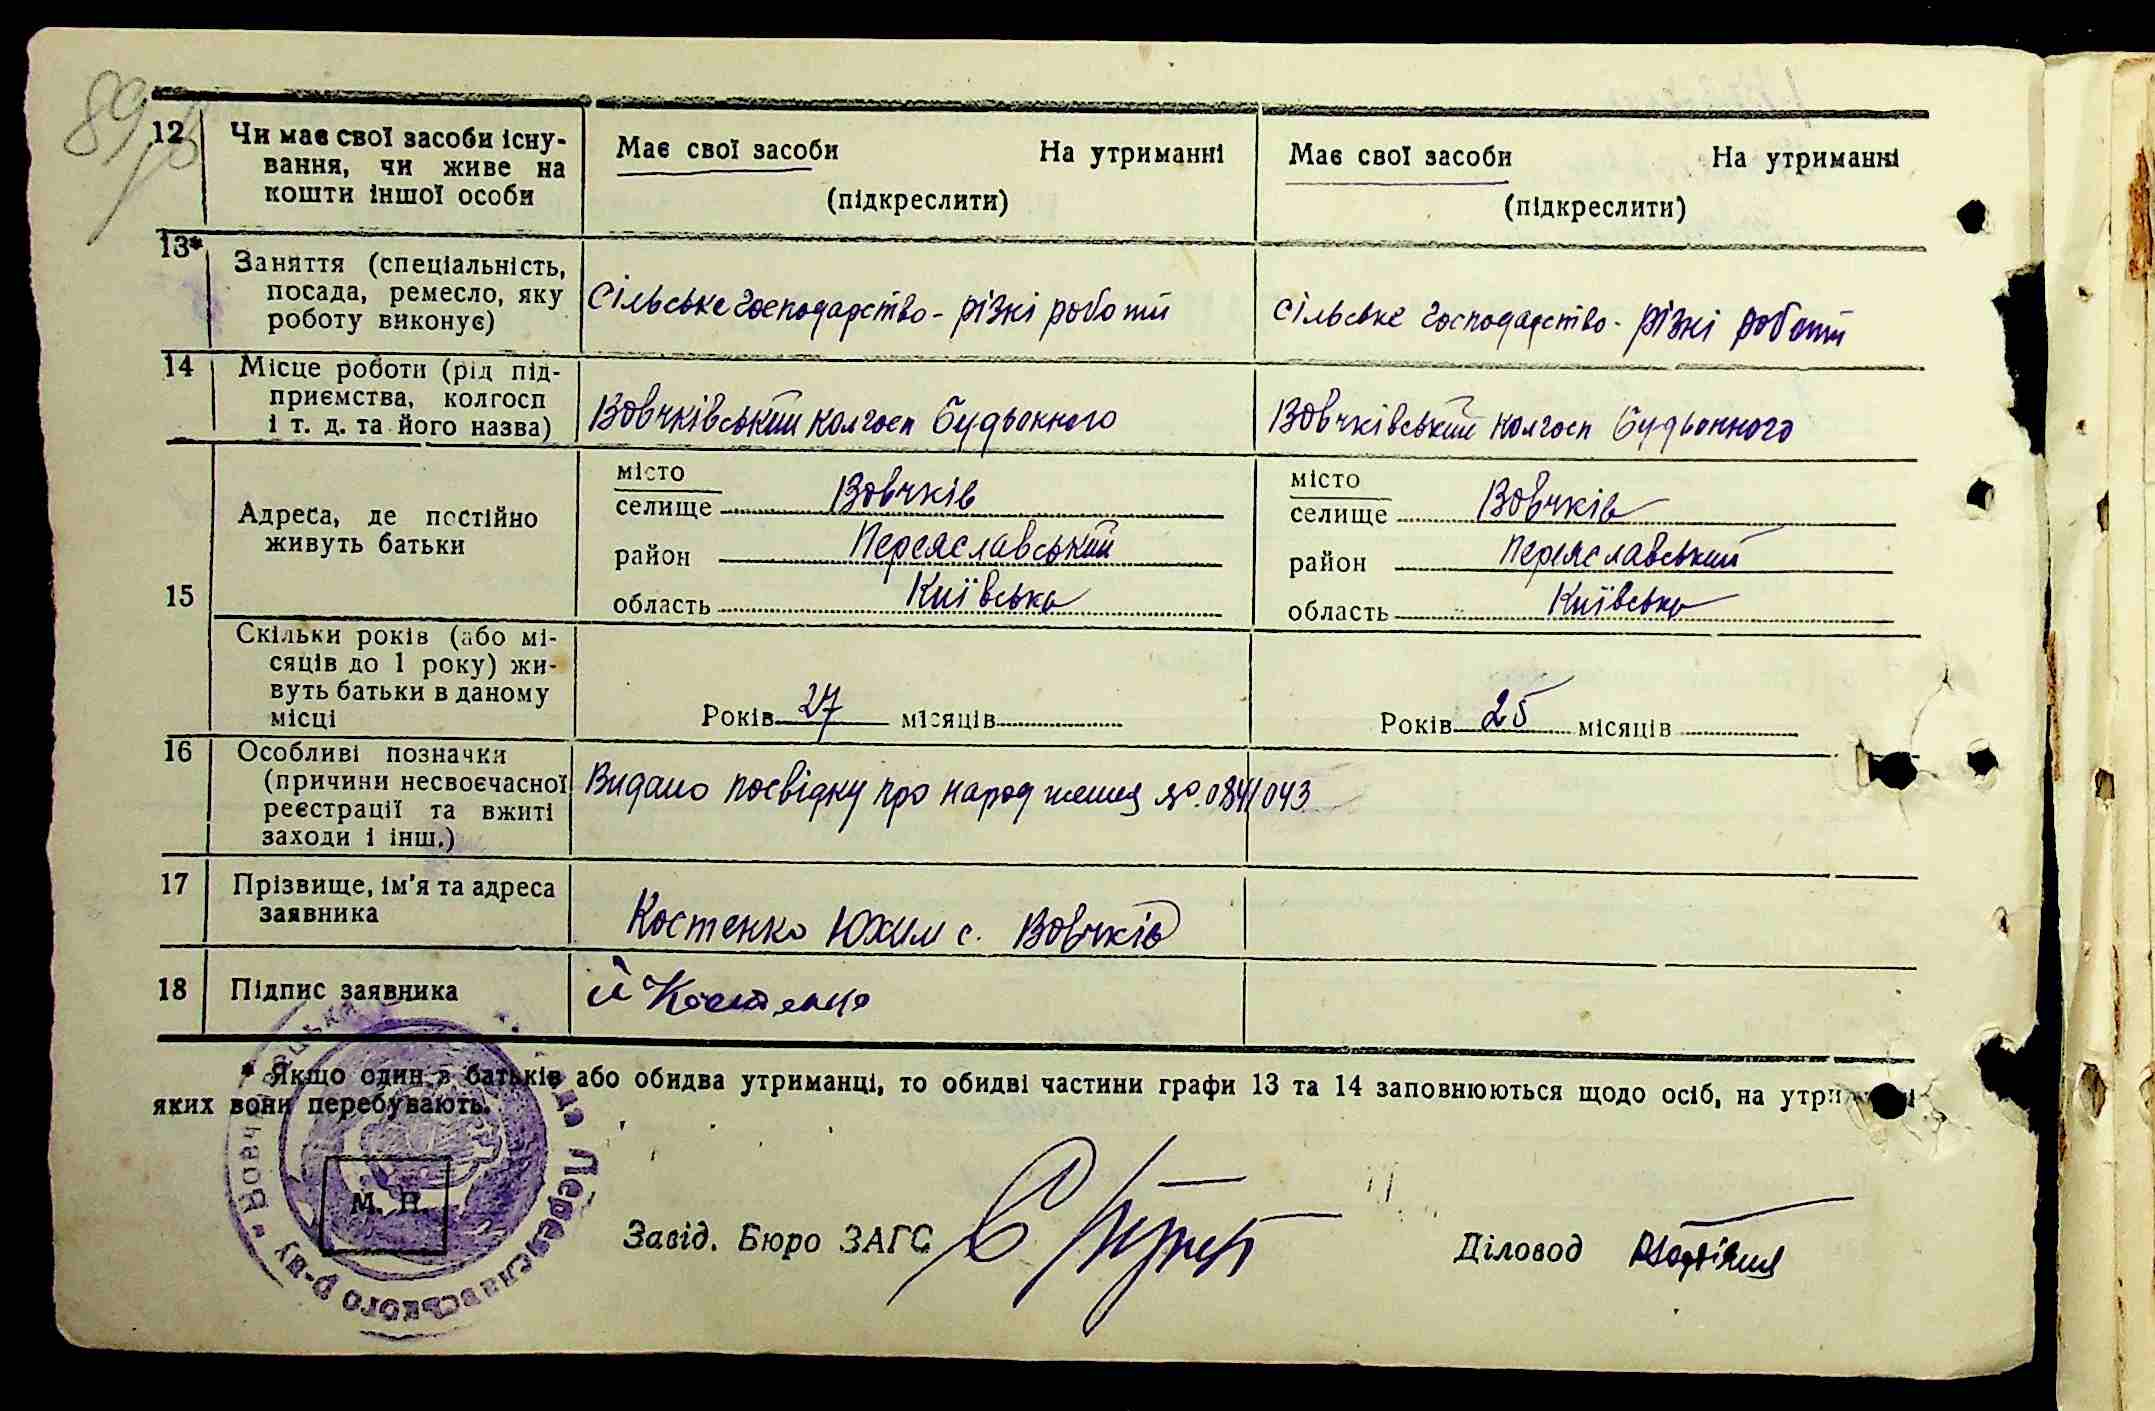 89
12
Чи має свої засоби існу-
вання, чи живе на
кошти іншої особи
Має свої засоби На утриманні
(підкреслити)
Має свої засоби На утриманні
(підкреслити)
13*
Заняття (спеціальність,
посада, ремесло, яку
роботу виконує)
Сільське господарство - різні роботи
Сільське господарство - різні роботи
14
Місце роботи (рід під-
приємства, колгосп
і т. д. та його назва)
Вовчківський колгосп Будьонного
Вовчківський колгосп Будьонного
15
Адреса, де постійно
живуть батьки
місто
селище Вовчків
район Переяславський
область Київська
місто
селище Вовчків
район Переяславський
область Київська
Скільки років (або мі-
сяців до 1 року) жи-
вуть батьки в даному
місці
Років 27 місяців
Років 25 місяців
16
Особливі позначки
(причини несвоєчасної
реєстрації та вжиті
заходи і інш.)
Видано посвідку про народження №.0841043
17
Прізвище, ім'я та адреса
заявника
Костенко Юхим с. Вовчків
18
Підпис заявника
Костенко
* Якщо один з батьків або обидва утриманці, то обидві частини графи 13 та 14 заповнюються щодо осіб, на
яких вони перебувають.
Переяславського р-ну
М. П.
Завід. Бюро ЗАГС
Діловод